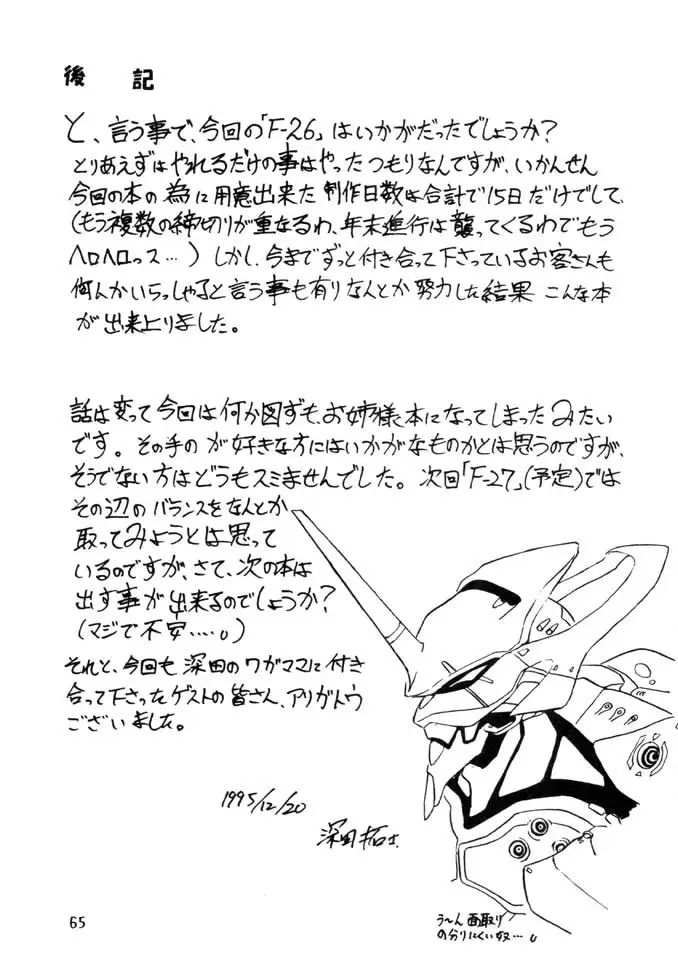 後記
と、言う事で、今回の「F-26」はいかがだったでしょうか?
とりあえずはやれるだけの事はやったつもりなんですが、いかんせん
今回の本の為に用意出来た制作日数は合計で15日だけでして、
(もう複数の締切りが重なるわ、年末進行は襲ってくるわでもう
ヘロヘロっス…)しかし、今までずっと付き合って下さっているお客さんも
何人かいらっしゃると言う事も有りなんとか努力した結果 こんな本
が出来上りました。
話は変って今回は何か図らずも、お姉様本になってしまったみたい
です。その手の が好きな方にはいかがなものかとは思うのですが、
そうでない方はどうもスミませんでした。次回「F-27」(予定)では
その辺のバランスをなんとか
取ってみようとは思って
いるのですが、さて、次の本は
出す事が出来るのでしょうか?
(マジで不安……。)
それと、今回も深田のワガママに付き
合って下さったゲストの皆さん、アリガトウ
ございました。
1995/12/20
深田拓士
う〜ん面取り
の分りにくい奴…。
65